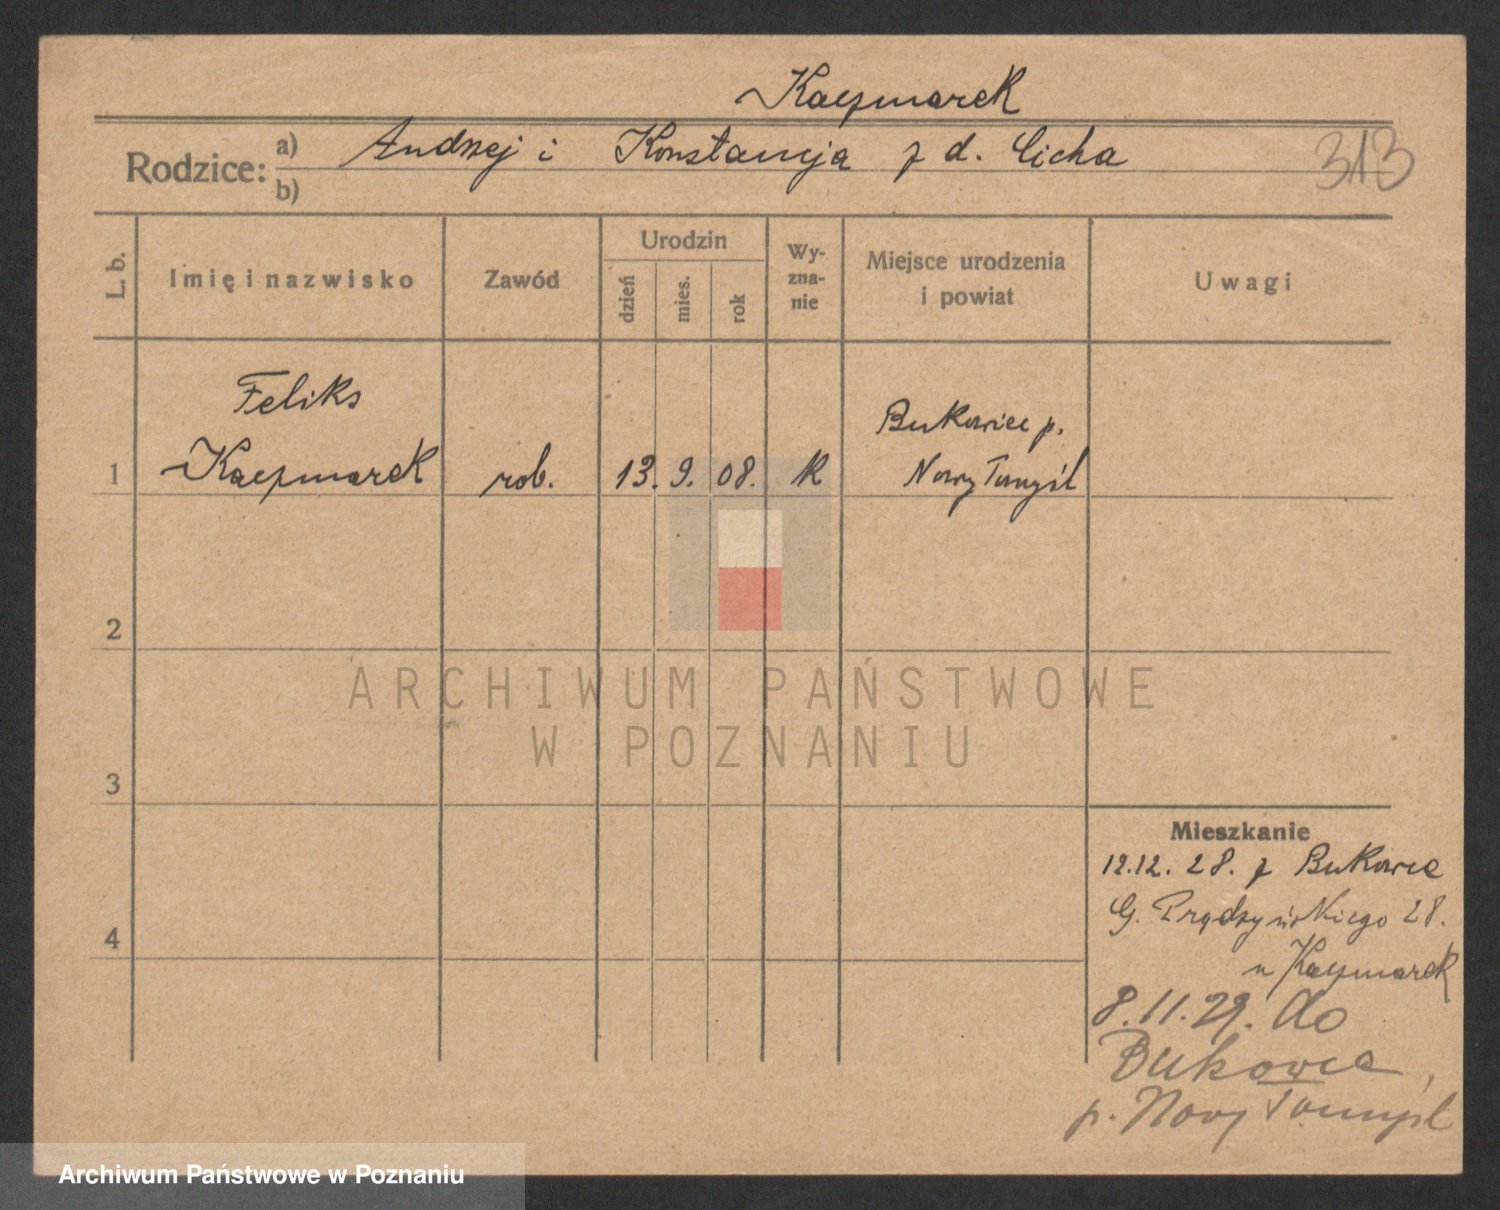 Kaczmarek
Rodzice: a) Andrzej i Konstancja z d. Cicha
b)
313
L. b.
Imię i nazwisko
Zawód
Urodzin
dzień
mies.
rok
Wy-
zna-
nie
Miejsce urodzenia
i powiat
Uwagi
Feliks
1 Kaczmarek rob. 13. 9. 08. k
Bukowiec p.
Nowy Tomyśl
2
3
4
ARCHIWUM PAŃSTWOWE
W POZNANIU
Mieszkanie
12.12. 28. z Bukowca
G. Prądzyńskiego 28.
u Kaczmarek
8.11.29. do
Bukowca,
p. Nowy Tomyśl
Archiwum Państwowe w Poznaniu